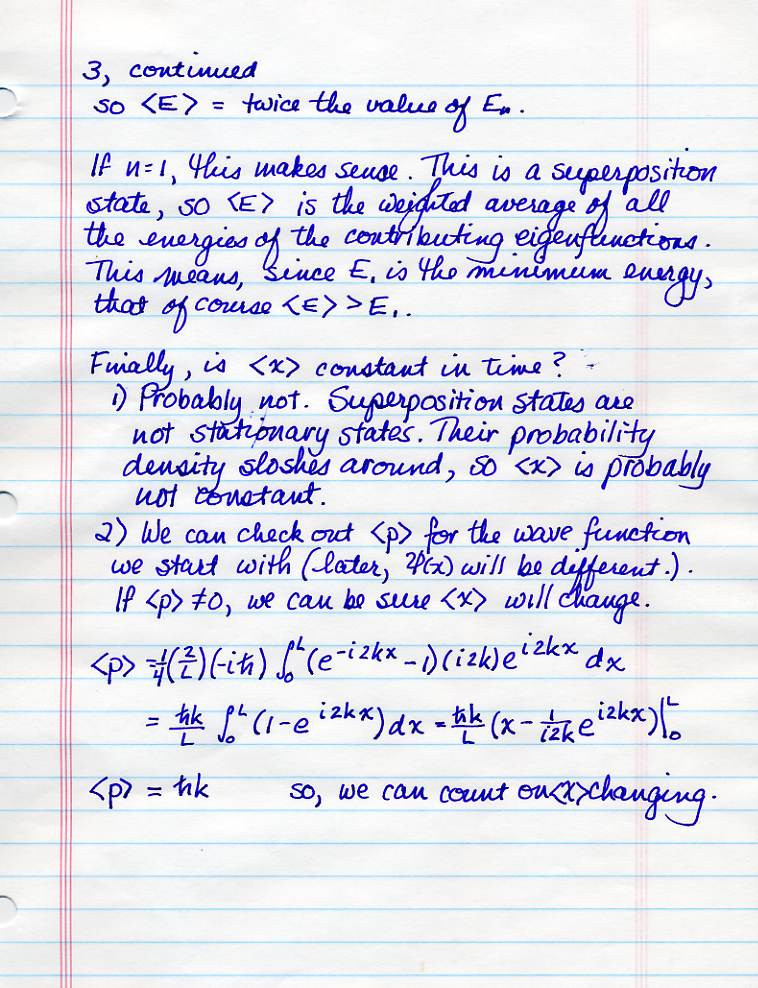 3, continued
so <E> = twice the value of Eₙ.
If n=1, this makes sense. This is a superposition
state, so <E> is the weighted average of all
the energies of the contributing eigenfunctions.
This means, since E₁ is the minimum energy,
that of course <E> > E₁.
Finally, is <x> constant in time?
1) Probably not. Superposition states are
not stationary states. Their probability
density sloshes around, so <x> is probably
not constant.
2) We can check out <p> for the wave function
we start with (later, ψ(x) will be different.).
If <p> ≠0, we can be sure <x> will change.
<p> = ¼(2/L)(-iħ) ∫₀ᴸ (e^{-i2kx} - 1)(i2k)e^{i2kx} dx
= ħk/L ∫₀ᴸ (1-e^{i2kx}) dx = ħk/L (x - 1/i2k e^{i2kx})|₀ᴸ
<p> = ħk so, we can count on <x> changing.